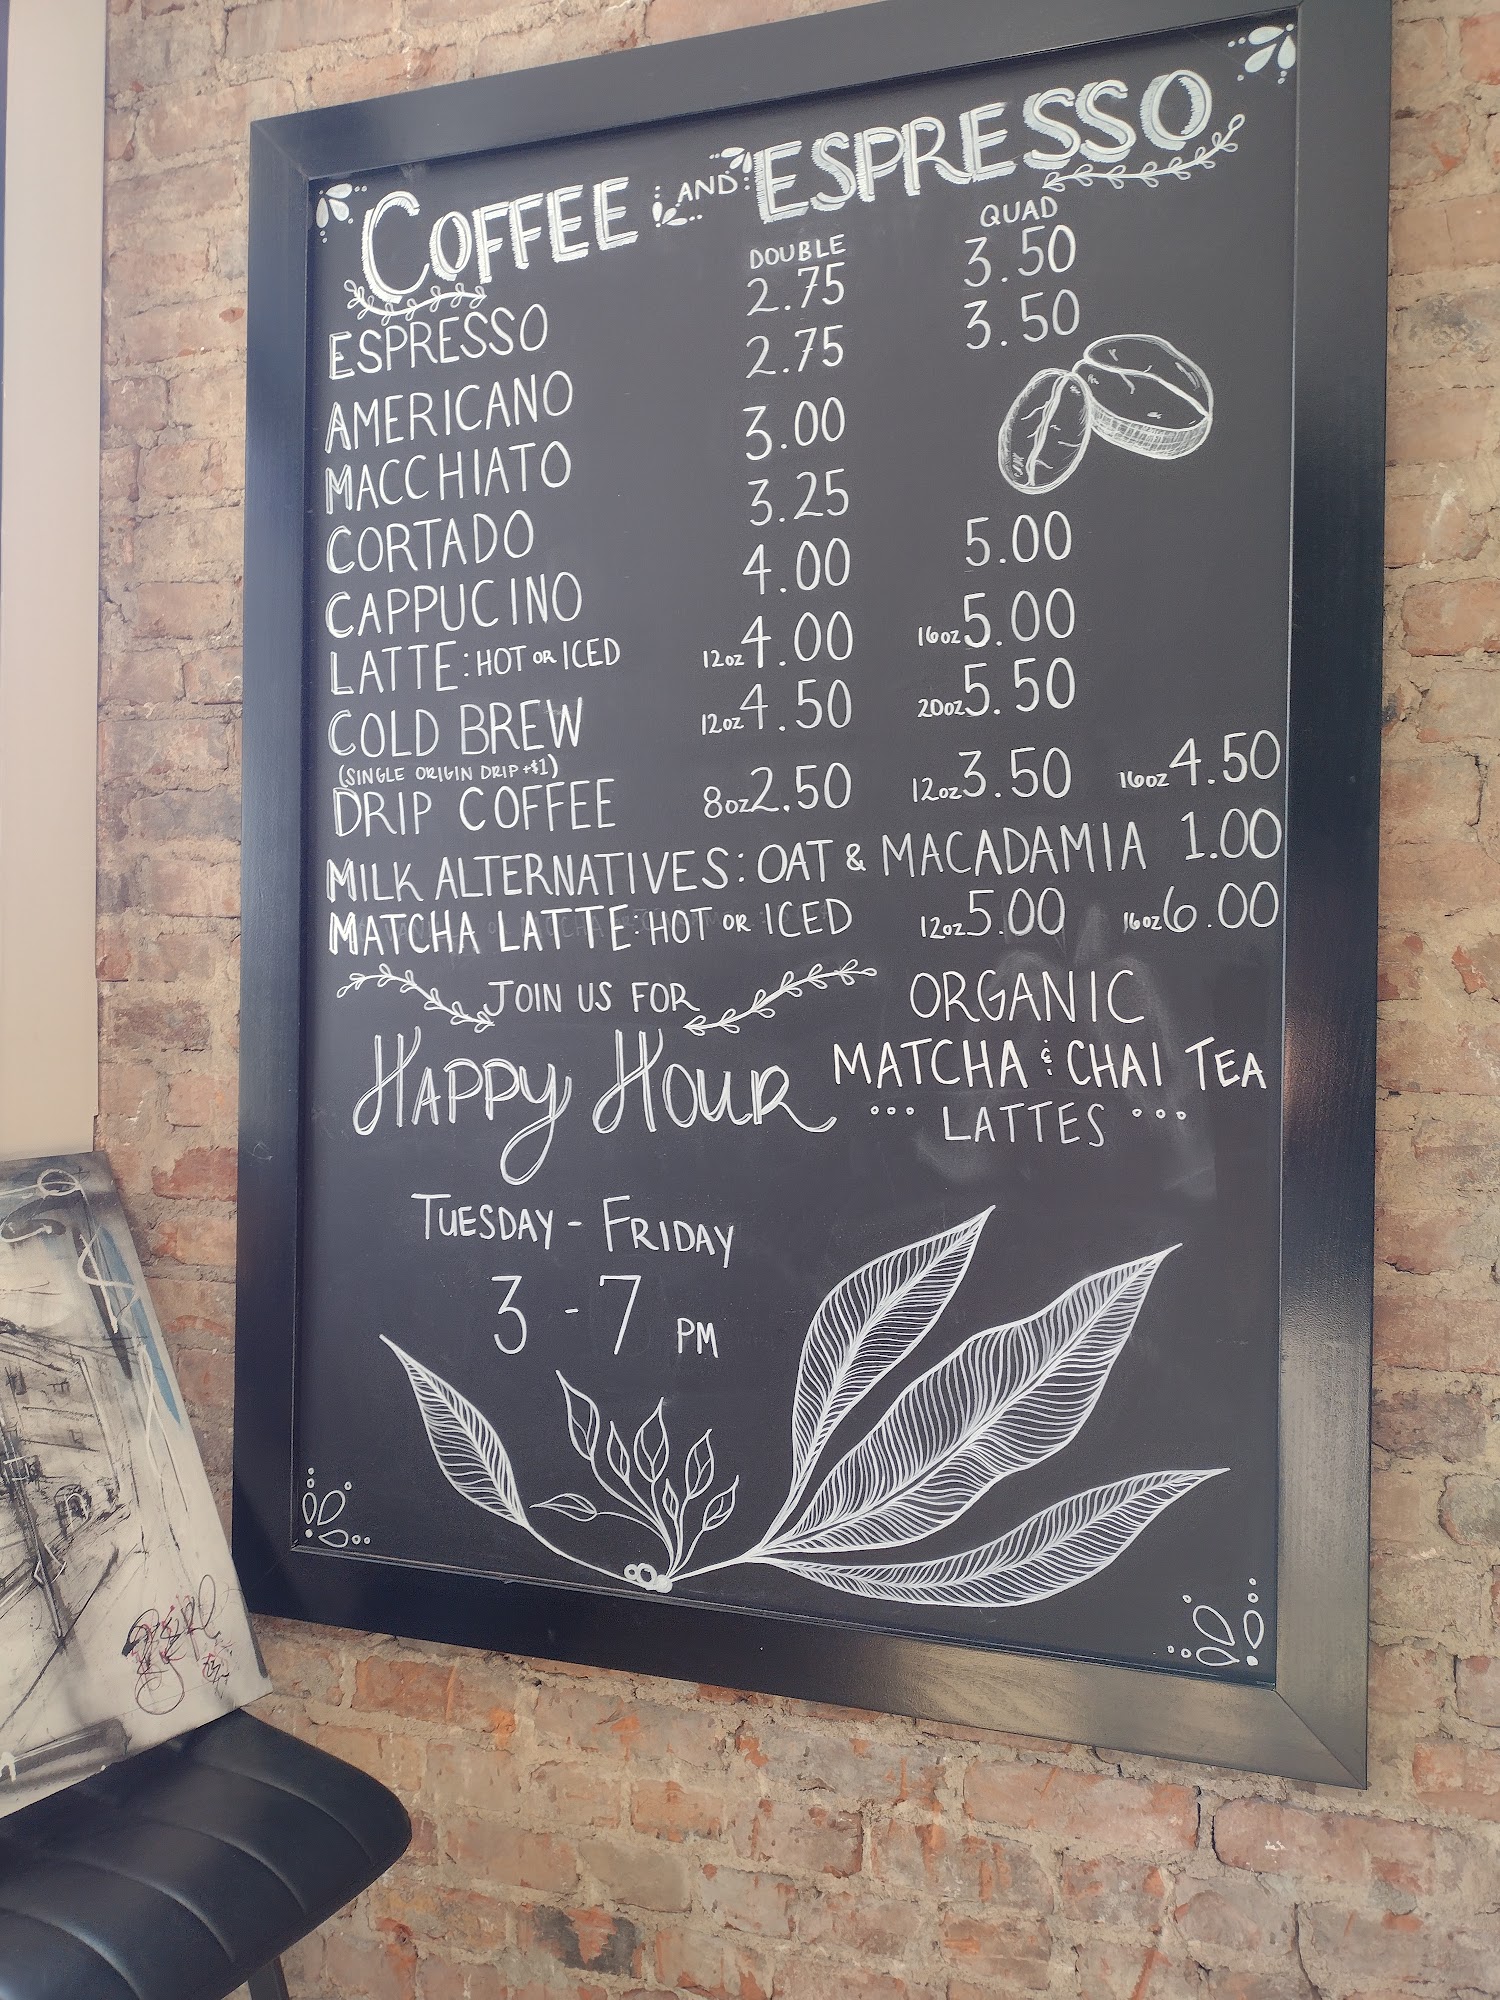 COFFEE AND ESPRESSO
DOUBLE QUAD
ESPRESSO 2.75 3.50
AMERICANO 2.75 3.50
MACCHIATO 3.00
CORTADO 3.25
CAPPUCINO 4.00 5.00
LATTE: HOT OR ICED 12oz 4.00 16oz 5.00
COLD BREW 12oz 4.50 20oz 5.50
(SINGLE ORIGIN DRIP +$1)
DRIP COFFEE 8oz 2.50 12oz 3.50 16oz 4.50
MILK ALTERNATIVES: OAT & MACADAMIA 1.00
MATCHA LATTE: HOT OR ICED 12oz 5.00 16oz 6.00
JOIN US FOR
HAPPY HOUR
TUESDAY - FRIDAY
3 - 7 PM
ORGANIC
MATCHA & CHAI TEA
LATTES